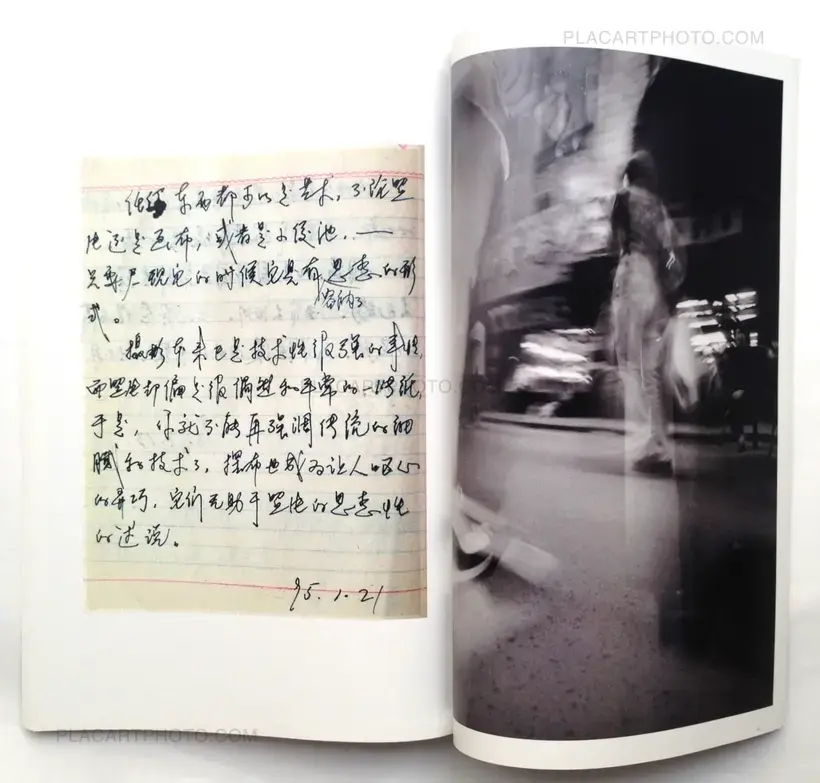 PLACARTPHOTO.COM
任何东西都可以是艺术,不论照
片还是画布,或者是小便池,——
只要展现它的时候它具有思想的形
容纳了
式。
摄影本来已是技术性很强的事情,
而照片却偏是很和平常的一
于是,你就不能再强调传统的细
腻和技术了,摆布也成为让人恶心
的弄巧,它们无助于照片的思想性
的述说。
95.1.21
PLACARTPHOTO.COM
PLACARTPHOTO.COM